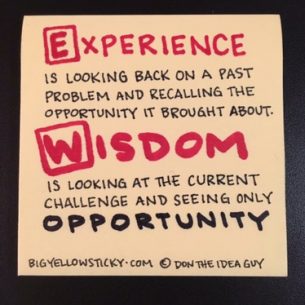 EXPERIENCE
IS LOOKING BACK ON A PAST
PROBLEM AND RECALLING THE
OPPORTUNITY IT BROUGHT ABOUT.
WISDOM
IS LOOKING AT THE CURRENT
CHALLENGE AND SEEING ONLY
OPPORTUNITY
BIGYELLOWSTICKY.COM © DON THE IDEA GUY